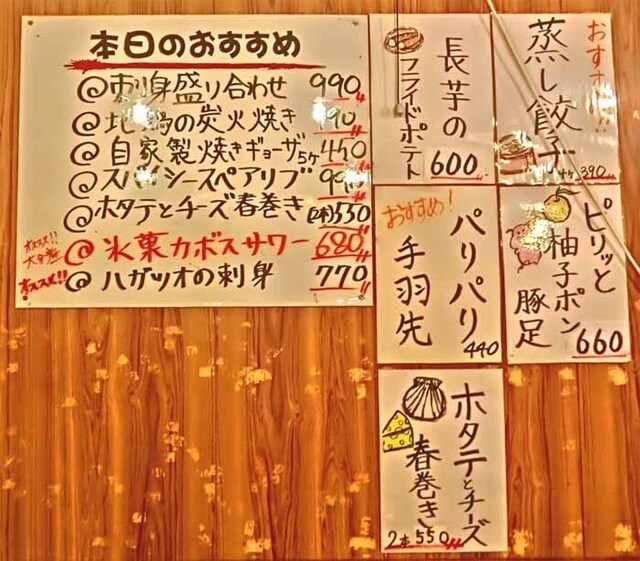 本日のおすすめ
@刺身盛り合わせ 990
@地鶏の炭火焼き
@自家製焼きギョーザ5ケ 450
@スパイシースペアリブ
@ホタテとチーズ春巻き (2本)550
オススメ!!
@氷菓カボスサワー 680
オススメ!! @ハガツオの刺身 770
長芋の
フライドポテト
600
おすすめ!!
蒸し餃子
390
おすすめ!
パリパリ
手羽先
440
ピリッと
柚子ポン
豚足
660
ホタテとチーズ
春巻き
2本 550